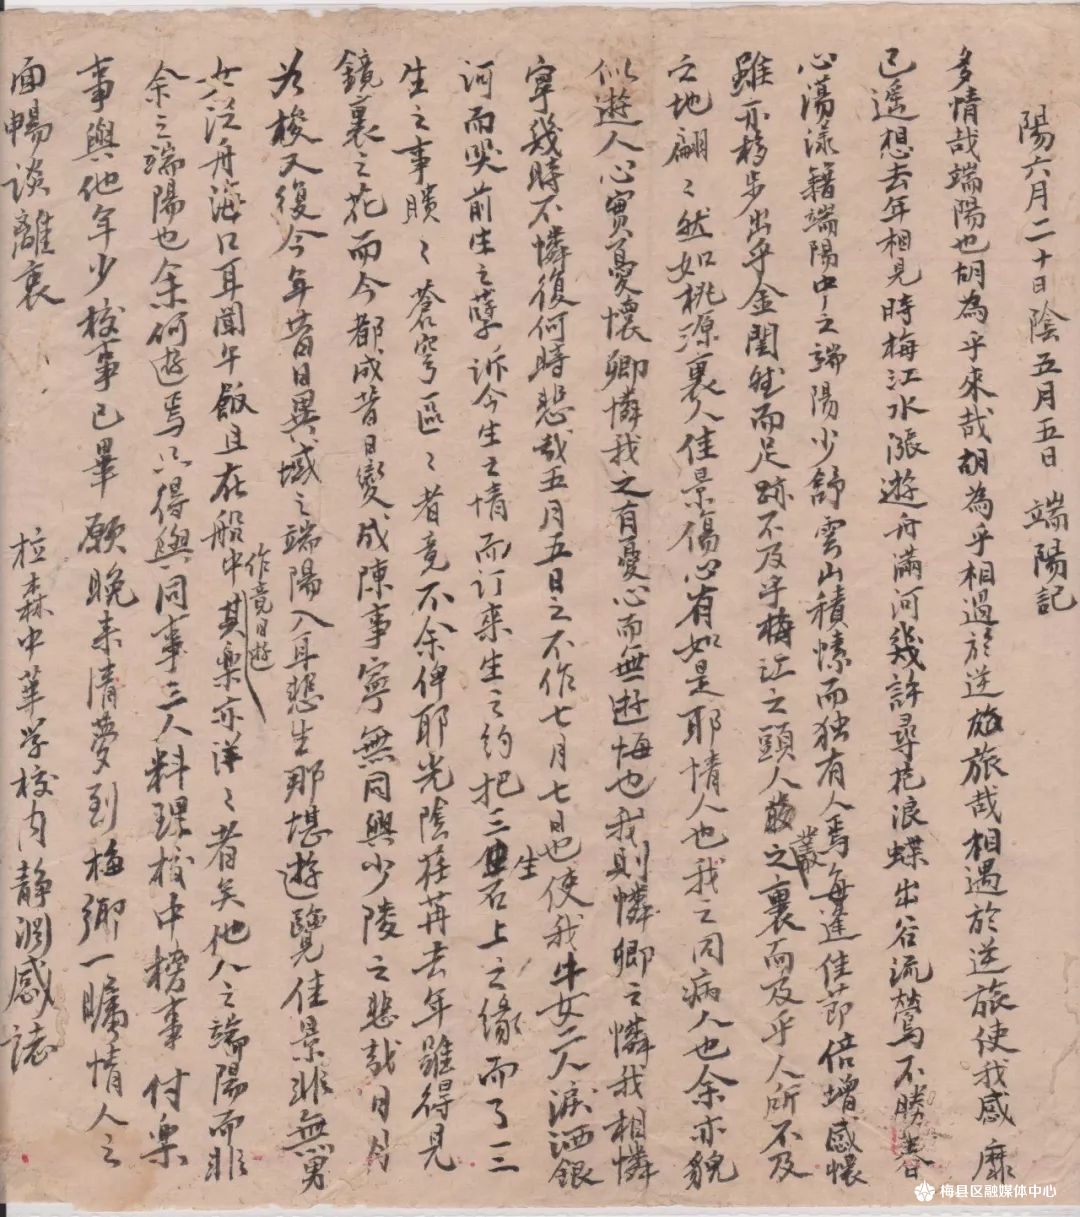 陽六月二十日陰五月五日 端陽記
多情哉端陽也胡為乎來哉胡為乎相過於逆旅哉相遇於逆旅使我感靡
已遥想去年相見時梅江水漲遊舟滿河幾許尋花浪蝶出谷流鶯不勝春
心蕩漾籍端陽中之端陽少舒雲山積愫而独有人焉每逢佳節倍增感懷
雖亦移步出乎金閨然而足跡不及乎梅江之頭人叢之裏而及乎人所不及
之地翩々然如桃源裏人佳景傷心有如是耶情人也我之同病人也余亦貌
似遊人心實憂懷卿憐我之有憂心而無遊悔也我則憐卿之憐我相憐
寧幾時不憐復何時悲哉五月五日之不作七月七日也使我牛女二人淚洒銀
河而哭前生之孽訴今生之情而订来生之约把三生石上之缘而了三
生之事膭々蒼穹區々者竟不余俾耶光陰荏苒去年雖得見
鏡裏之花而今都成昔日變成陳事寧無同興少陵之悲哉日月
为梭又復今年昔日異域之端陽入耳愁生那堪遊覽佳景非無男
女泛舟海口耳闻午飯且在船中作竟日遊其樂亦洋々者矣他人之端陽而非
余之端陽也余何遊焉只得與同事三人料理校中榜事付樂
事與他年少校事已畢願晚来清夢到梅鄉一矚情人之
面暢談離衷
拉森中華学校内静渊感誌
梅县区融媒体中心